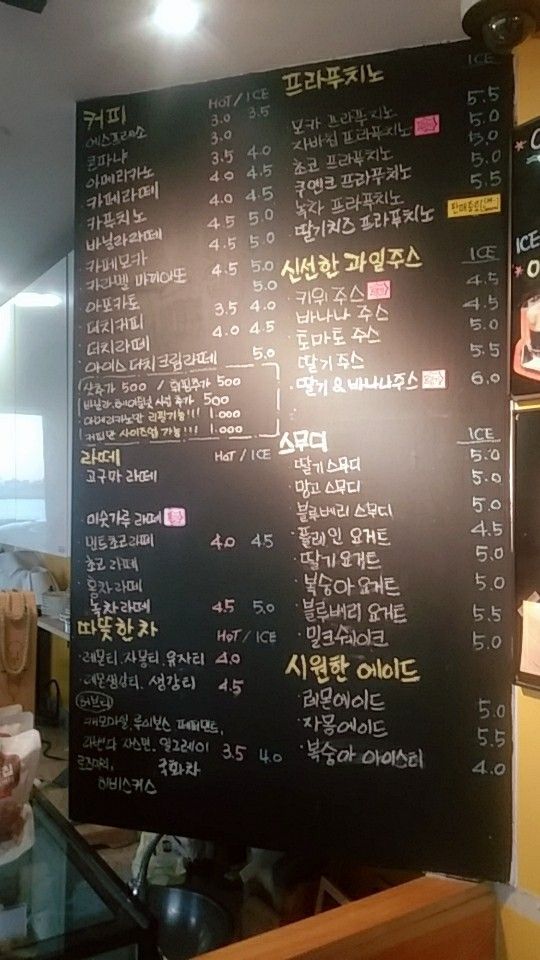 커피 HOT / ICE
에스프레소 3.0 3.5
콘파냐 3.0
아메리카노 3.5 4.0
카페라떼 4.0 4.5
카푸치노 4.0 4.5
바닐라라떼 4.5 5.0
카페모카 4.5 5.0
카라멜 마끼아또 4.5 5.0
아포카토 5.0
더치커피 3.5 4.0
더치라떼 4.0 4.5
아이스 더치크림라떼 5.0
샷추가 500 / 휘핑추가 500
바닐라, 헤이즐넛 시럽 추가 500
아메리카노만 리필가능!!! 1.000
커피만 사이즈업 가능!!! 1.000
라떼 HOT / ICE
고구마 라떼
미숫가루 라떼
민트초코라떼 4.0 4.5
초코 라떼
홍차라떼
녹차라떼 4.5 5.0
따뜻한 차 HOT / ICE
레몬티. 자몽티. 유자티 4.0
레몬생강티. 생강티 4.5
허브티
캐모마일. 루이보스 페퍼민트,
라벤다 자스민, 얼그레이 3.5 4.0
로즈마리, 국화차
히비스커스
프라푸치노 ICE
모카 프라푸치노 5.5
자바칩 프라푸치노 5.0
초코 프라푸치노 5.0
쿠앤크 프라푸치노 5.0
녹차 프라푸치노 5.5
딸기치즈 프라푸치노
신선한 과일주스 ICE
키위 주스 4.5
바나나 주스 4.5
토마토 주스 5.0
딸기 주스 5.5
딸기 & 바나나주스 6.0
스무디 ICE
딸기 스무디 5.0
망고 스무디 5.0
블루베리 스무디 5.0
플레인 요거트 4.5
딸기 요거트 5.0
복숭아 요거트 5.0
블루베리 요거트 5.5
밀크쉐이크 5.0
시원한 에이드
레몬에이드 5.0
자몽에이드 5.5
복숭아 아이스티 4.0
ICE